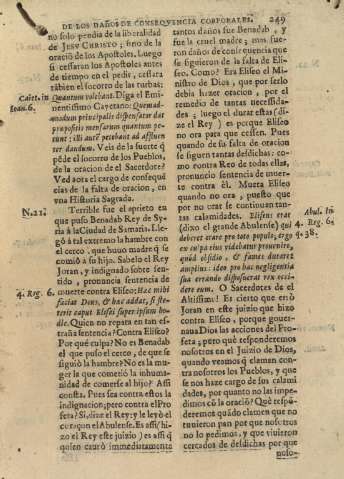 DE LOS DAÑOS DE CONSEQVENCIA CORPORALES. 249
no solo pendia de la liberalidad
de JESV CHRISTO; sino de la
oració de los Apostoles. Luego
si cessaran los Apostoles antes
de tiempo en el pedir, cessara
tãbien el socorro de las turbas:
Caiet. in
Ioan. 6.
Quantum volebant. Diga el Emi-
nentissimo Cayetano: Quemad-
modum principalis dispensator dat
propositis mensuram quantum pe-
tunt: illi autē petebant ad affluen-
ter dandum. Veis de la suerte q̄
pēde el socorro de los Pueblos,
de la oracion de el Sacerdote?
Ved aora el cargo de consequē
cias de la falta de oracion, en
vna Historia Sagrada.
N.21.
Terrible fue el aprieto en
que puso Benadab Rey de Sy-
ria à la Ciudad de Samaria. Lle-
gò à tal extremo la hambre con
el cerco, que huuo madre q̄ se
comiò a su hijo. Sabelo el Rey
Joran, y indignado sobre sen-
tido, pronuncia sentencia de
muerte contra Eliseo: Hæc mihi
4. Reg. 6.
faciat Deus, & hæc addat, si ste-
terit caput Elisei super ipsum ho-
die. Quien no repara en tan es-
traña sentencia? Contra Eliseo?
Por què culpa? No es Benadab
el que puso el cerco, de que se
siguiò la hambre? No es la mu-
ger la que cometiò la inhuma-
nidad de comerse al hijo? Assi
consta. Pues sea contra estos la
indignacion; pero contra el Pro-
feta? Si, dize el Rey: y le leyò el
coraçon el Abulense. Es assi (hi-
zo el Rey este juizio) es assi q̄
quien causò immediatamente
tantos daños fue Benadab, y
fue la cruel madre; mas fue-
ron daños de consequencia que
se siguieron de la falta de Eli-
seo. Como? Era Eliseo el Mi-
nistro de Dios, que por serlo
debia hazer oracion, por el
remedio de tantas necessida-
des; luego el durar estas (di-
ze el Rey) es porque Eliseo
no ora para que cessen. Pues
quando de su falta de oracion
se siguen tantas desdichas: co-
mo contra Reo de todas ellas,
pronuncio sentencia de muer-
te contra èl. Muera Eliseo
quando no ora, puesto que
por no orar se continuan
tantas calamidades. Eliseus erat
(dixo el grande Abulense) qui
Abul. in
4. Reg. 6.
q. 38.
deberet orare pro toto populo, ergo
ex eo pa eius videbatur prouenire,
quòd obsidio, & fames duraret
amplius: ideo pro hac negligentia
sua errando disposuerat rex occi-
dere eum. O Sacerdotes de el
Altissimo! Es cierto que errò
Joran en este juizio que hizo
contra Eliseo, porque gouer-
naua Dios las acciones del Pro-
feta; pero què responderemos
nosotros en el Juizio de Dios,
quando veamos q̄ claman con-
tra nosotros los Pueblos, y que
se nos haze cargo de sus calami
dades, por quanto no las impe-
dimos cō la oraciō? Què respō-
deremos quādo clamen que no
tuuieron pan por que nosotros
no lo pedimos, y que viuieron
cercados de desdichas por que
noso-